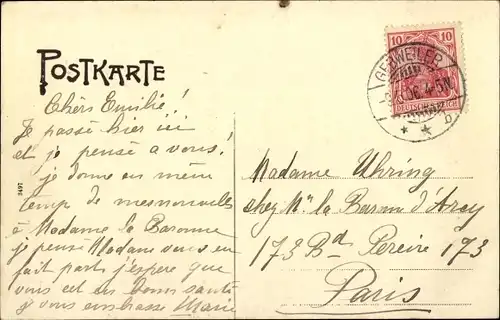 POSTKARTE
Chèrs Emilie!
Je passé hier ici
et je pensé a vous!
je donne en mème
temp de mesnouvelles
à Madame la Baronne
je pense Madame vous en
fait part j'espere que
vous ete en bonne santé
je vous embrasse Marie
2497
10 10
DEUTSCHES REICH
GEBWEILER
Madame Uhring
chez Mr la Baronn d'Arcy
173 Bd Pereire 173
Paris